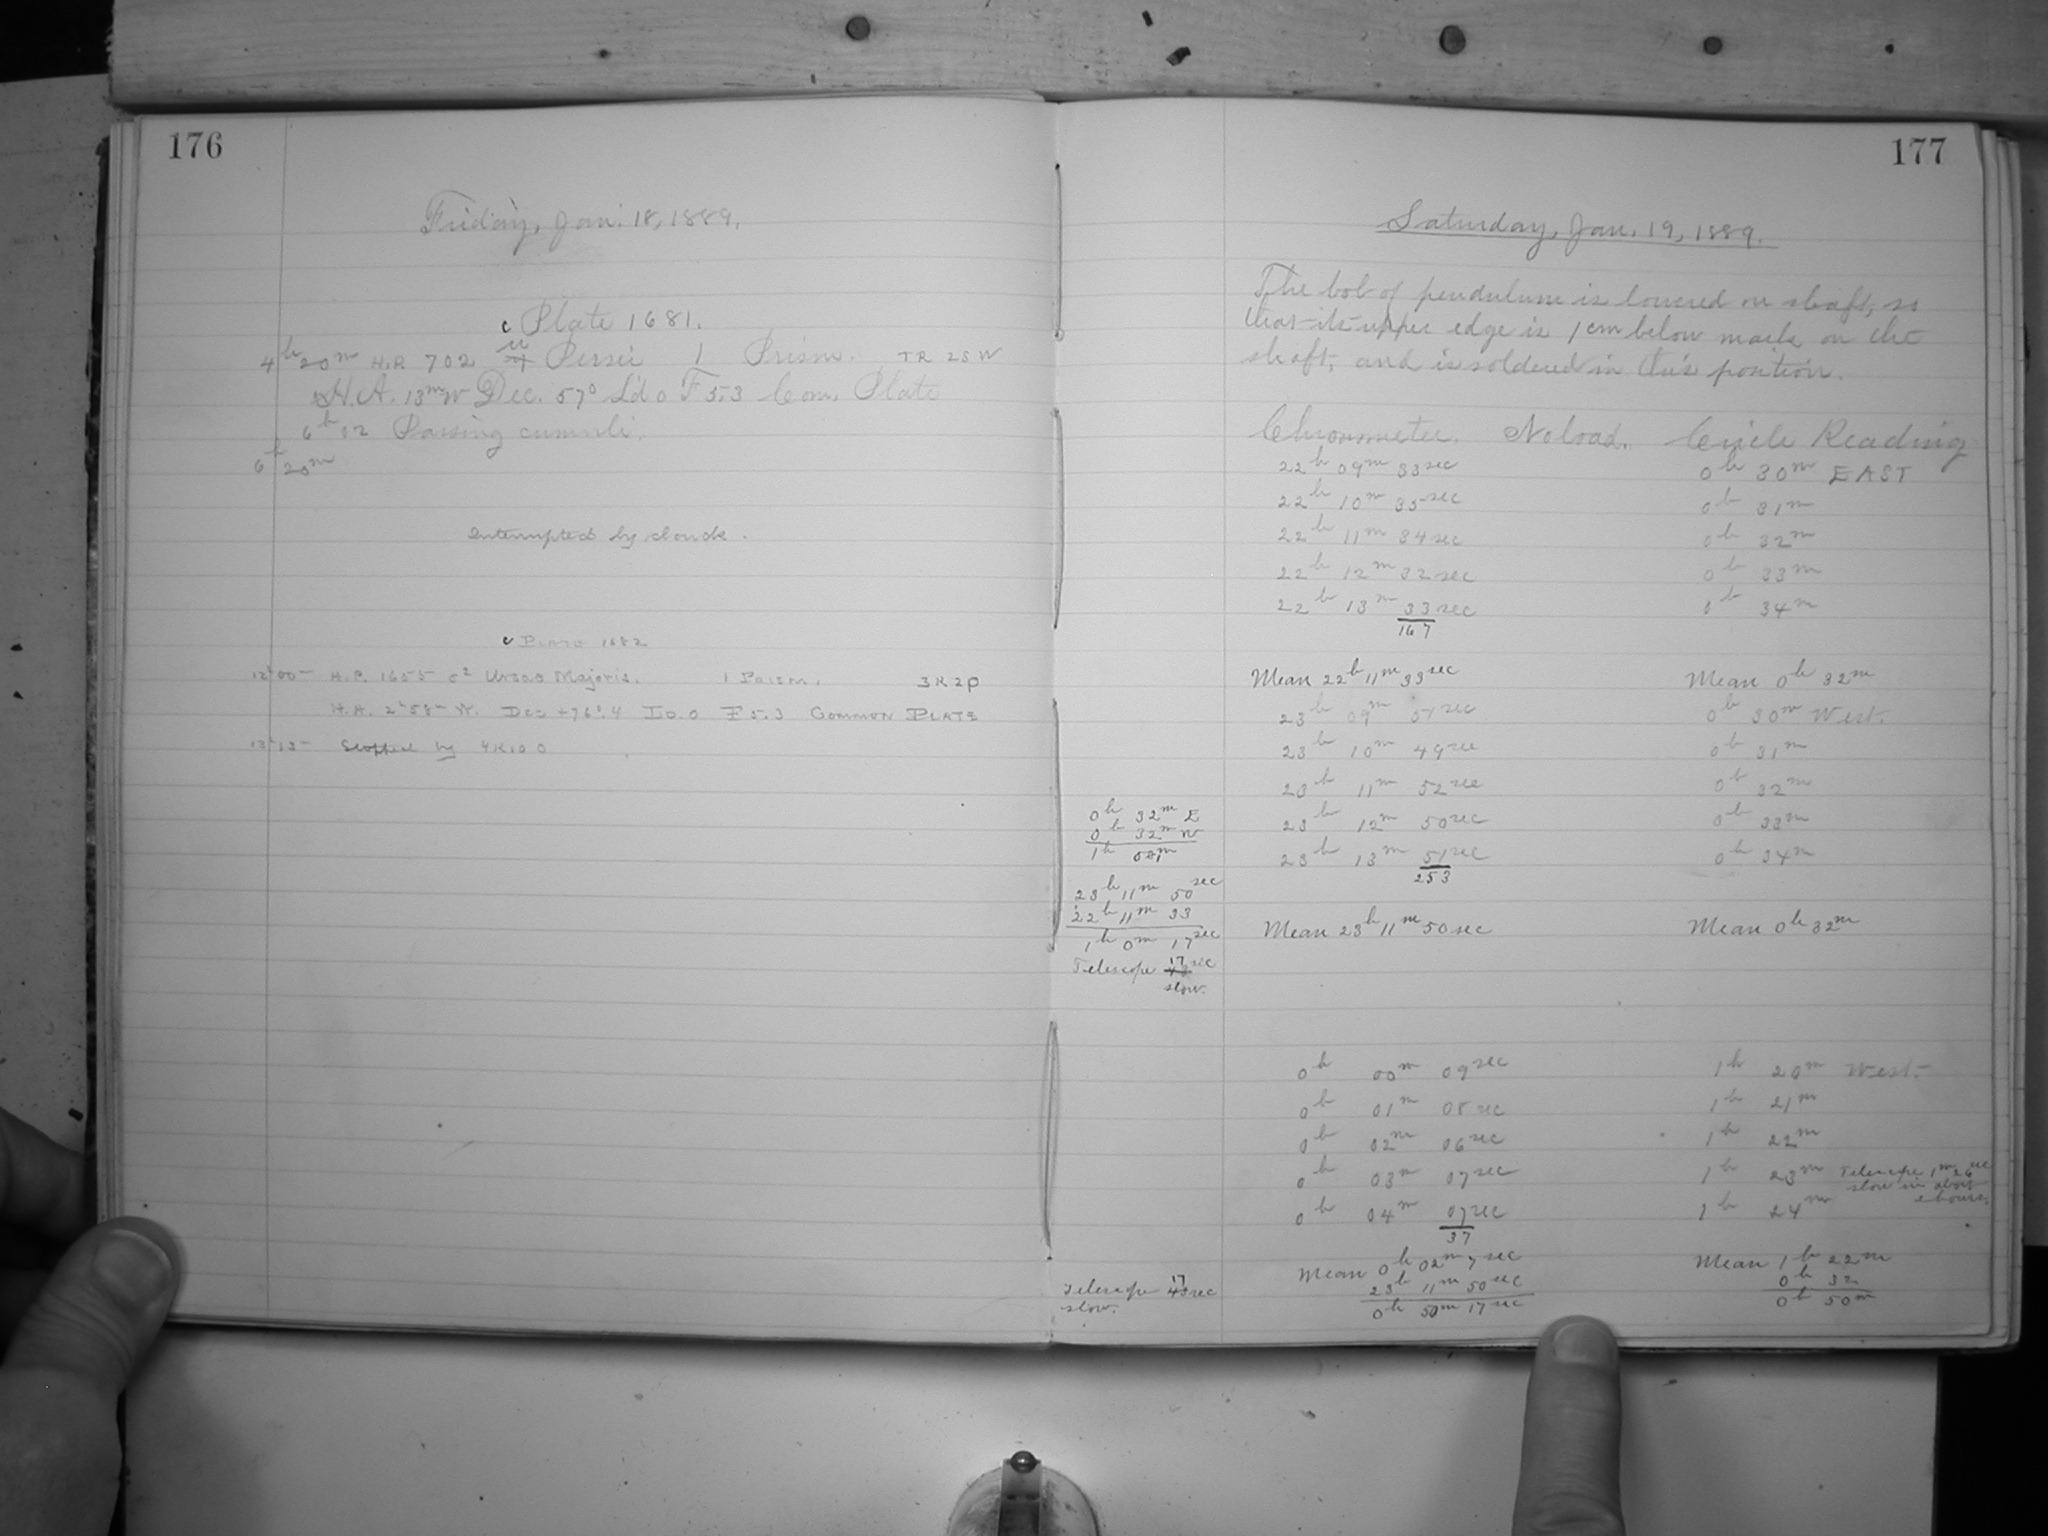 176
Friday, Jan. 18, 1889.
c Plate 1681.
4h 20m H.P. 702 η Persei 1 Prism. TR 2S W
H.A. 13m W Dec. 57° Ido F 5.3 Com. Plate
6h 02 Passing cumuli.
6h 20m
Interrupted by clouds.
c Plate 1682
12h00m H.P. 1655 σ2 Ursae Majoris. 1 Prism. 3R2P
H.A. 2h58m W. Dec +76°.4 Id.0 F 5.3 Common Plate
13h12m Stopped by 4R10 0
177
Saturday, Jan. 19, 1889.
The bob of pendulum is lowered on shaft, so
that its upper edge is 1cm below mark on the
shaft, and is soldered in this position.
Chronometer. No load. Circle Reading
22h 09m 33sec 0h 30m EAST
22h 10m 35sec 0h 31m
22h 11m 34sec 0h 32m
22h 12m 32sec 0h 33m
22h 13m 33sec 0h 34m
167
Mean 22h 11m 33sec Mean 0h 32m
23h 09m 51sec 0h 30m West.
23h 10m 49sec 0h 31m
23h 11m 52sec 0h 32m
23h 12m 50sec 0h 33m
23h 13m 51sec 0h 34m
253
Mean 23h 11m 50sec Mean 0h 32m
0h 32m E
0h 32m W
1h
23h 11m 50sec
22h 11m 33
1h 0m 17sec
Telescope 17sec
slow.
0h 00m 09sec 1h 20m West.
0h 01m 08sec 1h 21m
0h 02m 06sec 1h 22m
0h 03m 07sec 1h 23m Telescope 1m 26sec
slow in about
2 hours.
0h 04m 07sec 1h 24m
37
Mean 0h 02m 7sec Mean 1h 22m
23h 11m 50sec 0h 32
0h 50m 17sec 0h 50m
Telescope 17 sec
slow.